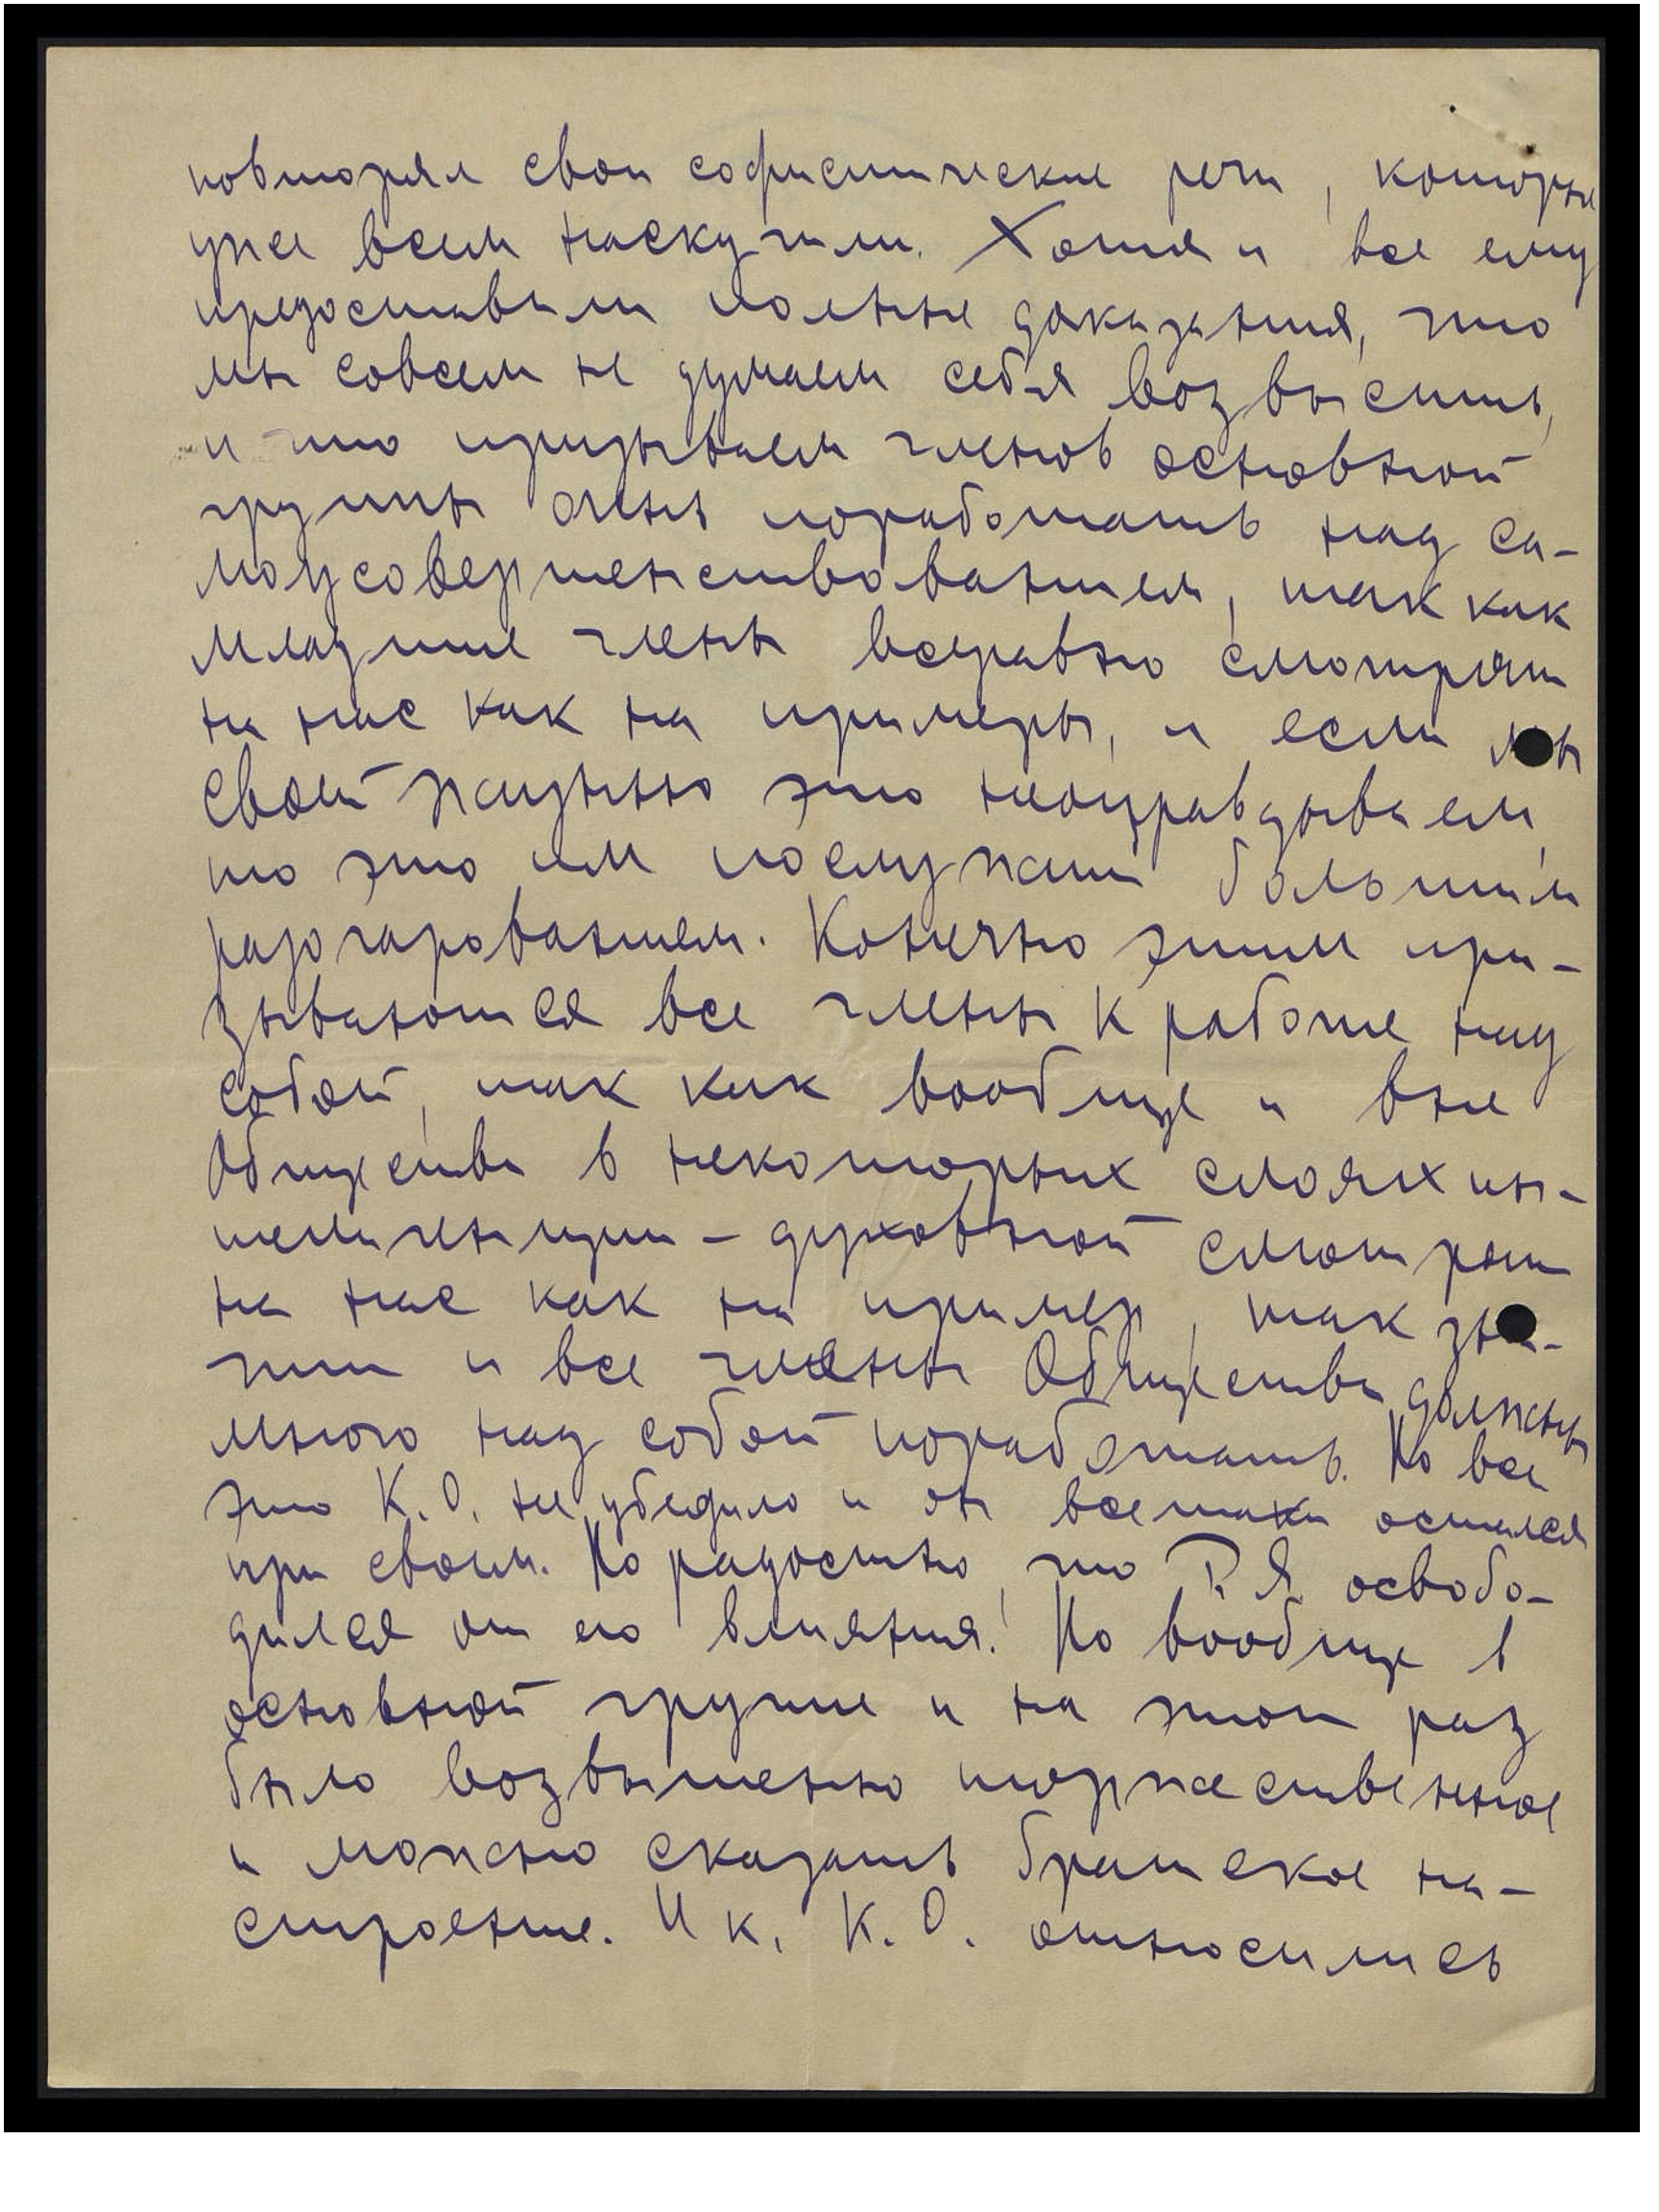 повторял свои софистические речи, которые
уже всем наскучили. Хотя и все ему
предоставили полные доказания, что
мы совсем не думаем себя возвысить,
и что призываем членов основной
группы очень поработать над са-
моусовершенствованием, так как
младшие члены всеравно смотрят
на нас как на примеры, и если мы
своей жизнью это неоправдываем,
то это им послужит большим
разочарованием. Конечно этим при-
зываются все члены к работе над
собой, так как вообще и вне
Общества в некоторых слоях ин-
теллигенции – духовной смотрят
на нас как на пример, так зна-
чит и все члены Общества должны
много над собой поработать. Но все
это К. О. не убедило и он всетаки остался
при своем. Но радостно, что Р. Я. освобо-
дился от его влияния! Но вообще в
основной группе и на этот раз
было возвышенно торжественное
и можно сказать братское на-
строение. И к. К. О. относились